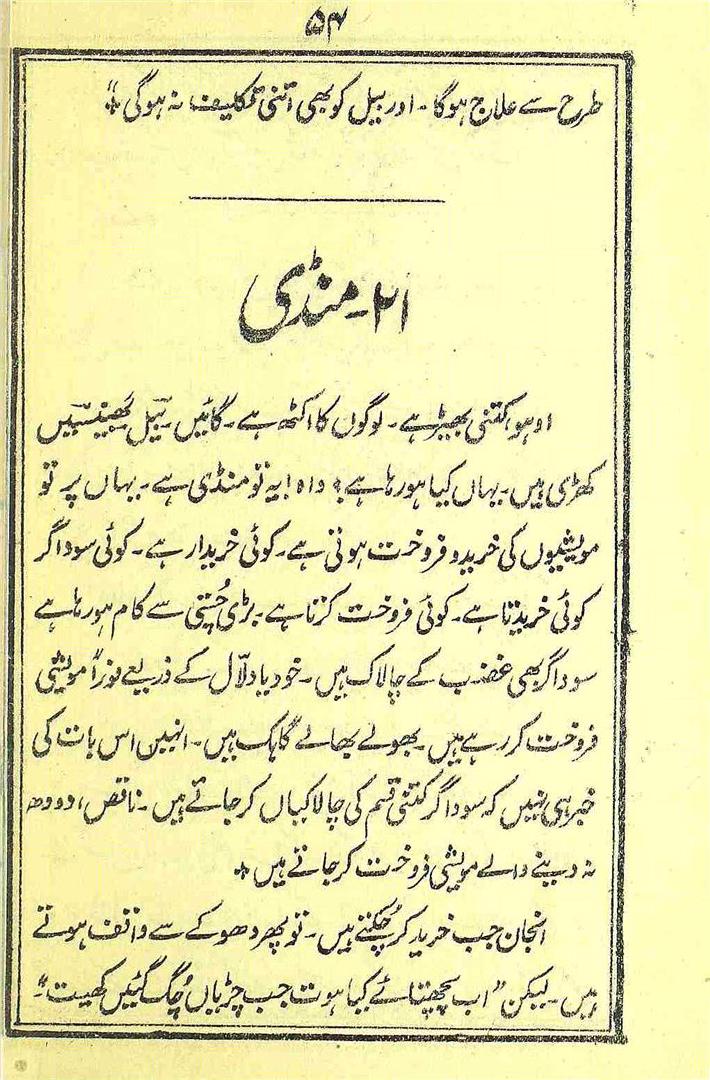 ۵۴
طرح سے علاج ہوگا۔ اور بیل کو بھی اتنی تکلیف نہ ہوگی"+
۲۱۔ منڈی
اوہو، کتنی بھیڑ ہے۔ لوگوں کا اکٹھ ہے۔ گائیں۔ بَیل بھینسیں
کھڑی ہیں۔ یہاں کیا ہو رہا ہے؟ واہ! یہ تو منڈی ہے۔ یہاں پر تو
مویشیوں کی خرید و فروخت ہوتی ہے۔ کوئی خریدار ہے۔ کوئی سوداگر
کوئی خریدتا ہے۔ کوئی فروخت کرتا ہے۔ بڑی چُستی سے کام ہو رہا ہے
سوداگر بھی غضب کے چالاک ہیں۔ خود یا دلّال کے ذریعے فوراً مویشی
فروخت کر رہے ہیں۔ بھولے بھالے گاہک ہیں۔ انہیں اس بات کی
خبر ہی نہیں کہ سوداگر کتنی قسم کی چالاکیاں کر جاتے ہیں۔ ناقص، دودھ
نہ دینے والے مویشی فروخت کر جاتے ہیں+
انجان جب خرید کر چُکتے ہیں۔ تو پھر دھوکے سے واقف ہوتے
ہیں۔ لیکن "اب پچھتائے کیا ہوت جب چڑیاں چُگ گئیں کھیت"۔